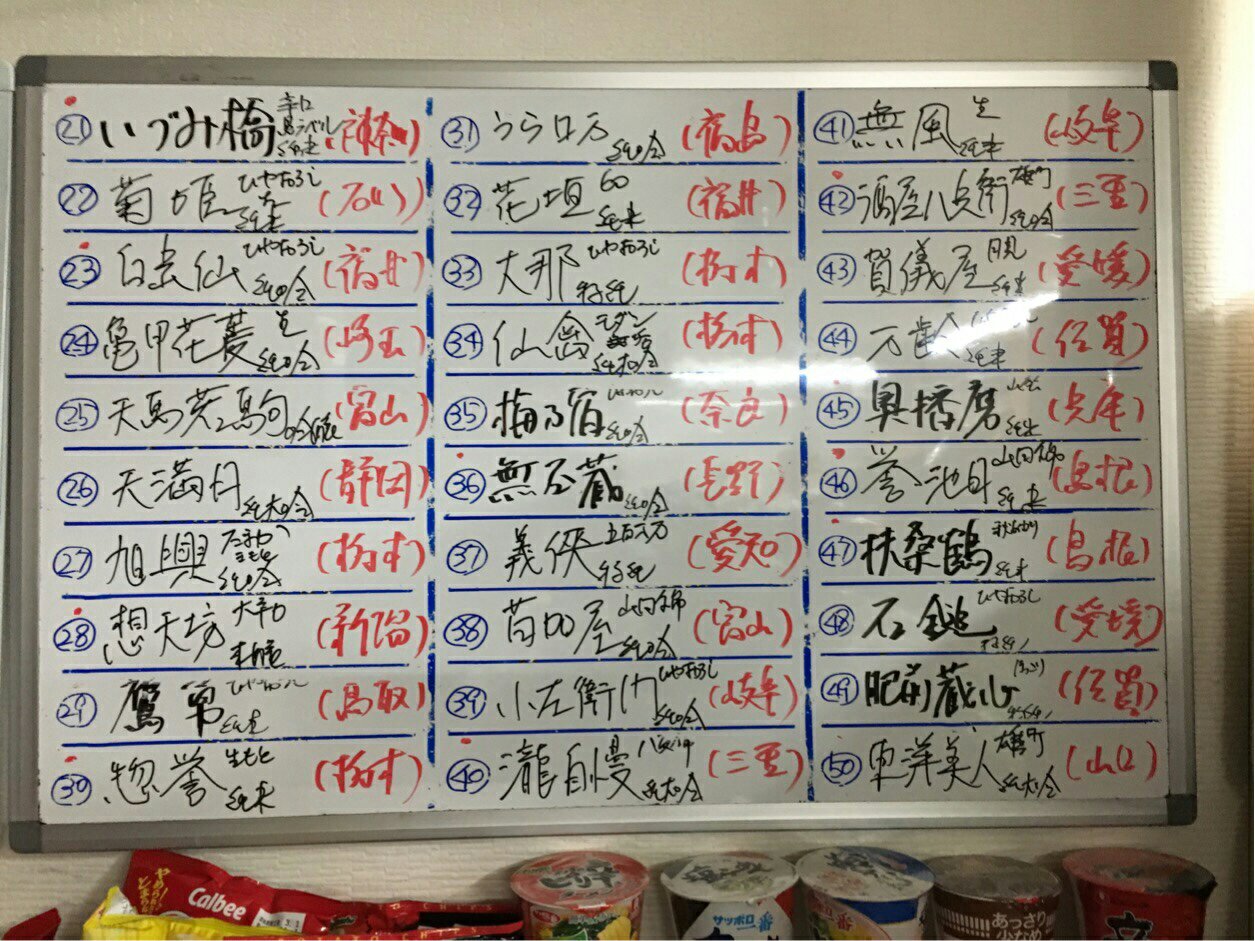 ㉑ いづみ橋 辛口 純米
㉒ 菊姫 ひやおろし 純米 (石川)
㉓ 白岳仙 ひやおろし 純吟 (福井)
㉔ 亀甲花菱 生 純吟 (埼玉)
㉕ 天馬 (富山)
㉖ 天満月 純大吟 (静岡)
㉗ 旭興 純吟 (栃木)
㉘ 想天坊 大辛口 (新潟)
㉙ 鷹勇 ひやおろし 純米 (鳥取)
㉚ 惣誉 生もと 純米 (栃木)
㉛ うら 純吟 (福島)
㉜ 花垣 60 純米 (福井)
㉝ 大那 ひやおろし 特純 (栃木)
㉞ 仙禽 モダン 純大吟 (栃木)
㉟ 梅乃宿 純吟 (奈良)
㊱ 無石蔵 純吟 (長野)
㊲ 義侠 五百万 特純 (愛知)
㊳ 苗加屋 山田錦 純吟 (富山)
㊴ 小左衛門 ひやおろし 純吟 (岐阜)
㊵ 瀧自慢 純大吟 (三重)
㊶ 無風 生 純米 (岐阜)
㊷ 酒屋八兵衛 雄町 純吟 (三重)
㊸ 賀儀屋 月見 純米 (愛媛)
㊹ 万齢 純米 (佐賀)
㊺ 奥播磨 純米 (兵庫)
㊻ 誉池月 山田錦 純米 (島根)
㊼ 扶桑鶴 純米 (島根)
㊽ 石鎚 ひやおろし (愛媛)
㊾ 肥前蔵心 (佐賀)
㊿ 東洋美人 雄町 純大吟 (山口)
Calbee
サッポロ一番
あっさり
少なめ
辛